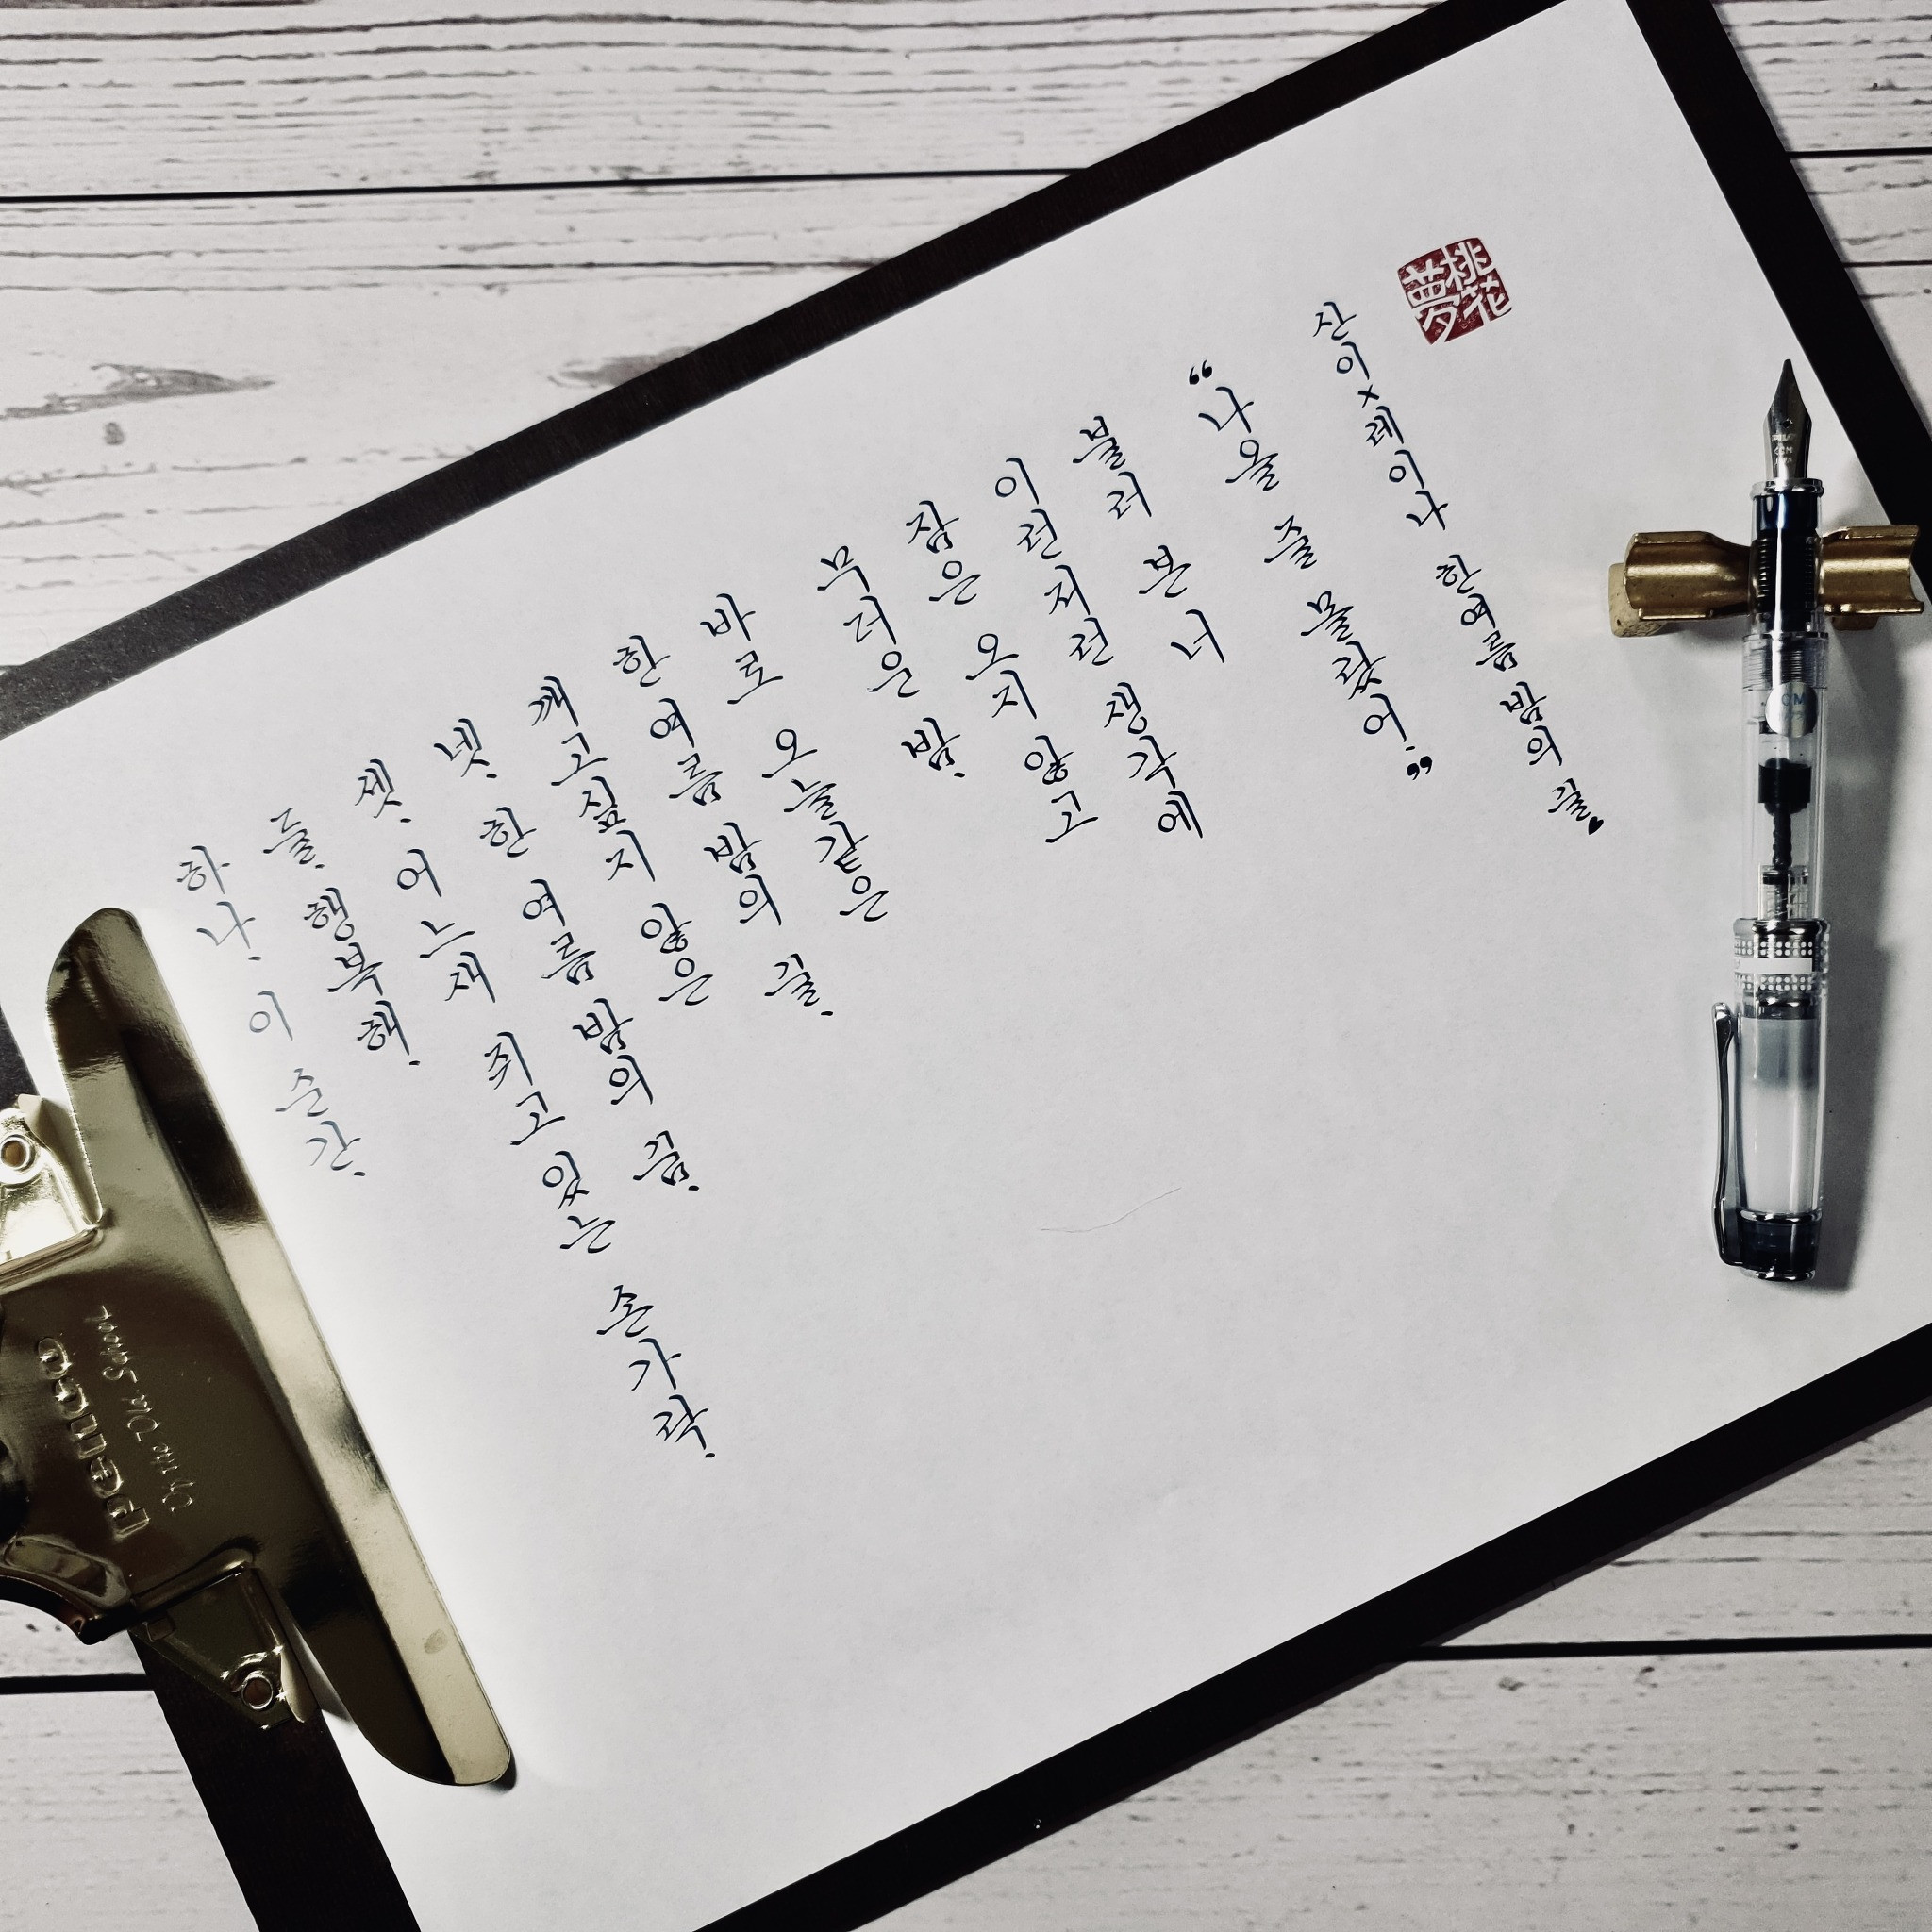 하나. 이 순간.
둘. 행복해.
셋. 어느새 쥐고 있는 손가락.
넷. 한 여름 밤의 꿈.
깨고싶지 않은
한 여름 밤의 꿀.
바로 오늘같은
무더운 밤.
잠은 오지 않고
이런저런 생각에
불러 본 너
“나올 줄 몰랐어.”
산이x레이나 한여름 밤의 꿀♥
桃花夢
penco